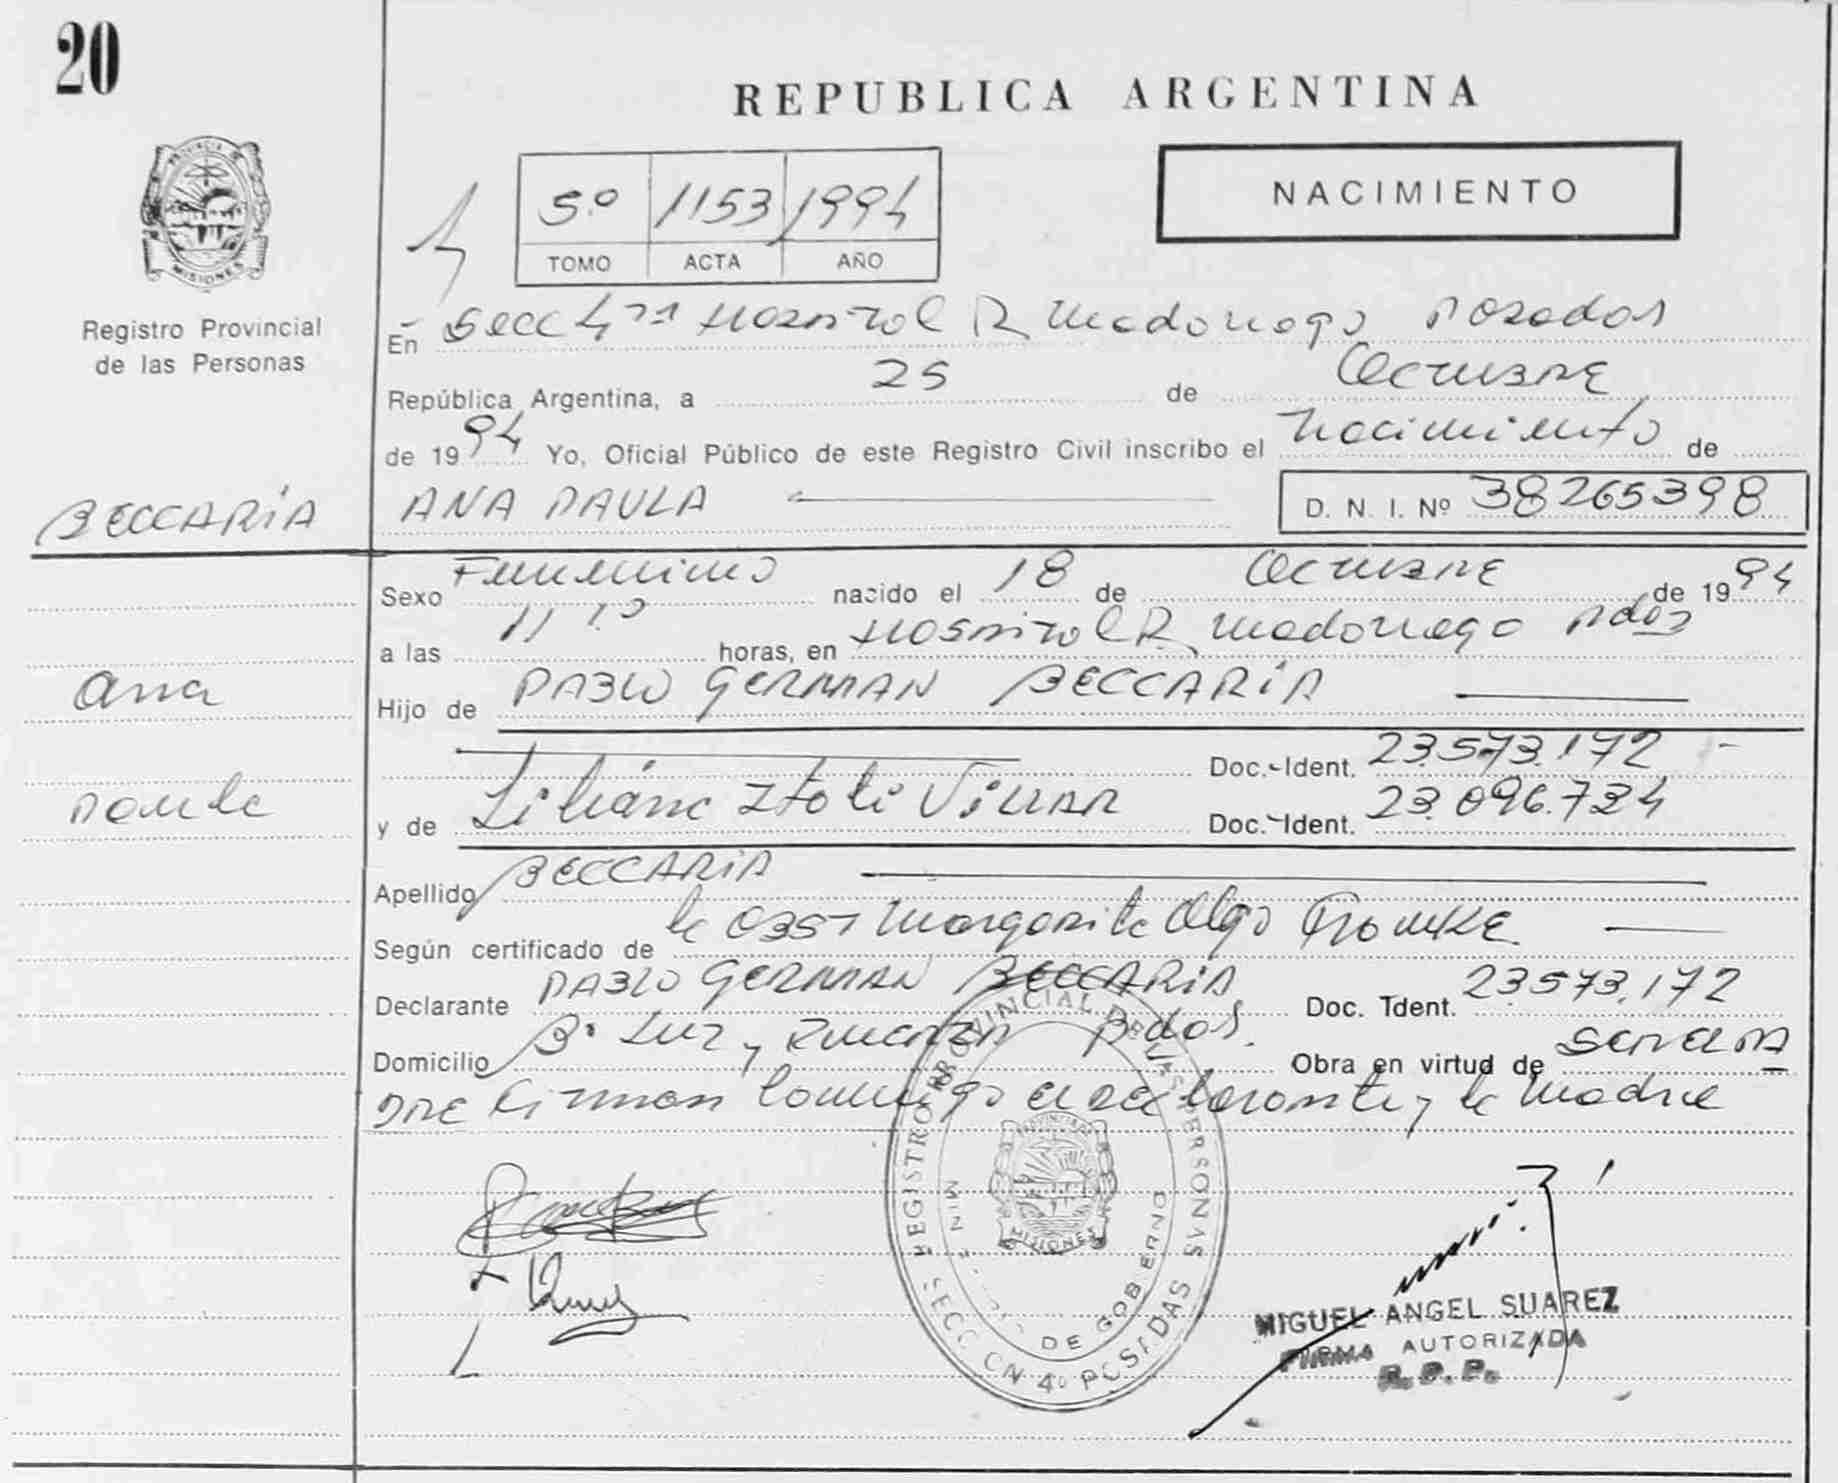 20
REPUBLICA ARGENTINA
PROVINCIA DE
MISIONES
Registro Provincial
de las Personas
5º 1153 1994
TOMO ACTA AÑO
NACIMIENTO
En Secc 4ta Hospital R Madariaga Posadas
República Argentina, a 25 de Octubre
de 1994 Yo, Oficial Público de este Registro Civil inscribo el Nacimiento de
BECCARIA ANA PAULA D. N. I. Nº 38265398
Sexo Femenino nacido el 18 de Octubre de 1994
a las 11 horas, en Hospital R Madariaga Pdas
Ana
Hijo de PABLO GERMAN BECCARIA
Doc.-Ident. 23.573.172
Paula
y de Liliana Itati Villar Doc.-Ident. 23.096.734
Apellido BECCARIA
Según certificado de la Obst Margarita Olga
Declarante PABLO GERMAN BECCARIA Doc. Tdent. 23573.172
Domicilio Bº Luz y Fuerza Pdas. Obra en virtud de ser el pa
dre Firman conmigo el declarante y la madre
REGISTRO PROVINCIAL DE LAS PERSONAS
MISIONES
DE GOBIERNO
SECCION 4º POSADAS
MIGUEL ANGEL SUAREZ
FIRMA AUTORIZADA
R. P. P.